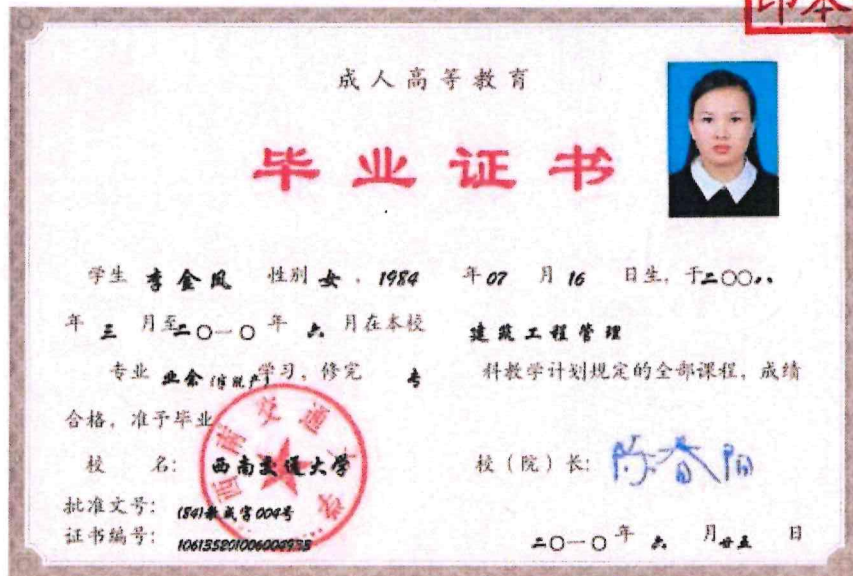 印本
成人高等教育
毕业证书
学生 李金凤 性别 女，1984 年 07 月 16 日生，于二〇〇八
年 三 月至二〇一〇 年 六 月在本校 建筑工程管理
专业 业余(半脱产) 学习，修完 专 科教学计划规定的全部课程，成绩
合格，准予毕业
校 名： 西南交通大学 校（院）长： 陈春阳
西南交通大学
批准文号： (84)教成字004号
证书编号： 106135201006004933 二〇一〇 年 六 月 廿五 日